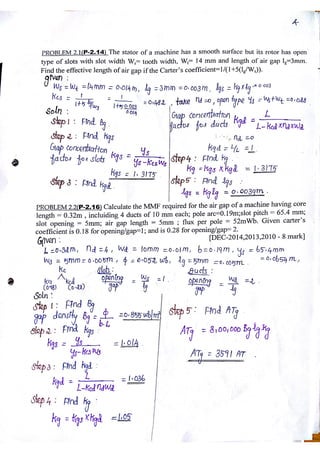 PROBLEM 2.1(P-2.14) The stator of a machine has a smooth surface but its rotor has open
type of slots with slot width Ws= tooth width, Wt= 14 mm and length of air gap lg=3mm.
Find the effective length of air gap if the Carter's coefficient=1/(1+5(lg/Ws)).
given :
Ws = Wt = 14mm = 0.014m, lg = 3mm = 0.003m, lgs = kg lg
Kcs = 1/(1+5 lg/Ws) = 1/(1+5 0.003/0.014) = 0.482, take nd = 0, open type ys = Wt+Ws = 0.028
Soln :
Step 1 : Find kcs
Step 2 : Find kgs
Gap concentration factor for slots kgs = ys/(ys-kcsWs)
kgs = 1.3175
Step 3 : Find kgd
Gap concentration factor for ducts kgd = L/(L-kcd nd wd)
nd = 0
kgd = L/L = 1.
Step 4 : Find kg
kg = kgs x kgd = 1.3175
Step 5 : Find lgs
lgs = kg lg = 0.0039m
PROBLEM 2.2(P-2.16) Calculate the MMF required for the air gap of a machine having core
length = 0.32m , including 4 ducts of 10 mm each; pole arc=0.19m;slot pitch = 65.4 mm;
slot opening = 5mm; air gap length = 5mm ; flux per pole = 52mWb. Given carter's
coefficient is 0.18 for opening/gap=1; and is 0.28 for opening/gap= 2.
[DEC-2014,2013,2010 - 8 mark]
Given :
L=0.32m, nd=4, wd = 10mm =0.01m, b=0.19m, ys = 65.4mm = 0.0654m,
Ws = 5mm = 0.005m, ϕ = 0.052 wb, lg = 5mm = 0.005m.
kc
kcs (0.18) kcd (0.28)
slots : opening/gap = Ws/lg = 1
Ducts : opening/gap = wd/lg = 2.
Soln :
Step 1 : Find Bg
gap density Bg = ϕ/b.L = 0.855 wb/m²
Step 2 : Find kgs
kgs = ys/(ys-kcsWs) = 1.014
Step 3 : Find kgd
kgd = L/(L-kcd nd wd) = 1.036
Step 4 : Find kg
kg = kgs x kgd = 1.05
Step 5 : Find ATg
ATg = 8,00,000 Bg lg kg
ATg = 3591 AT